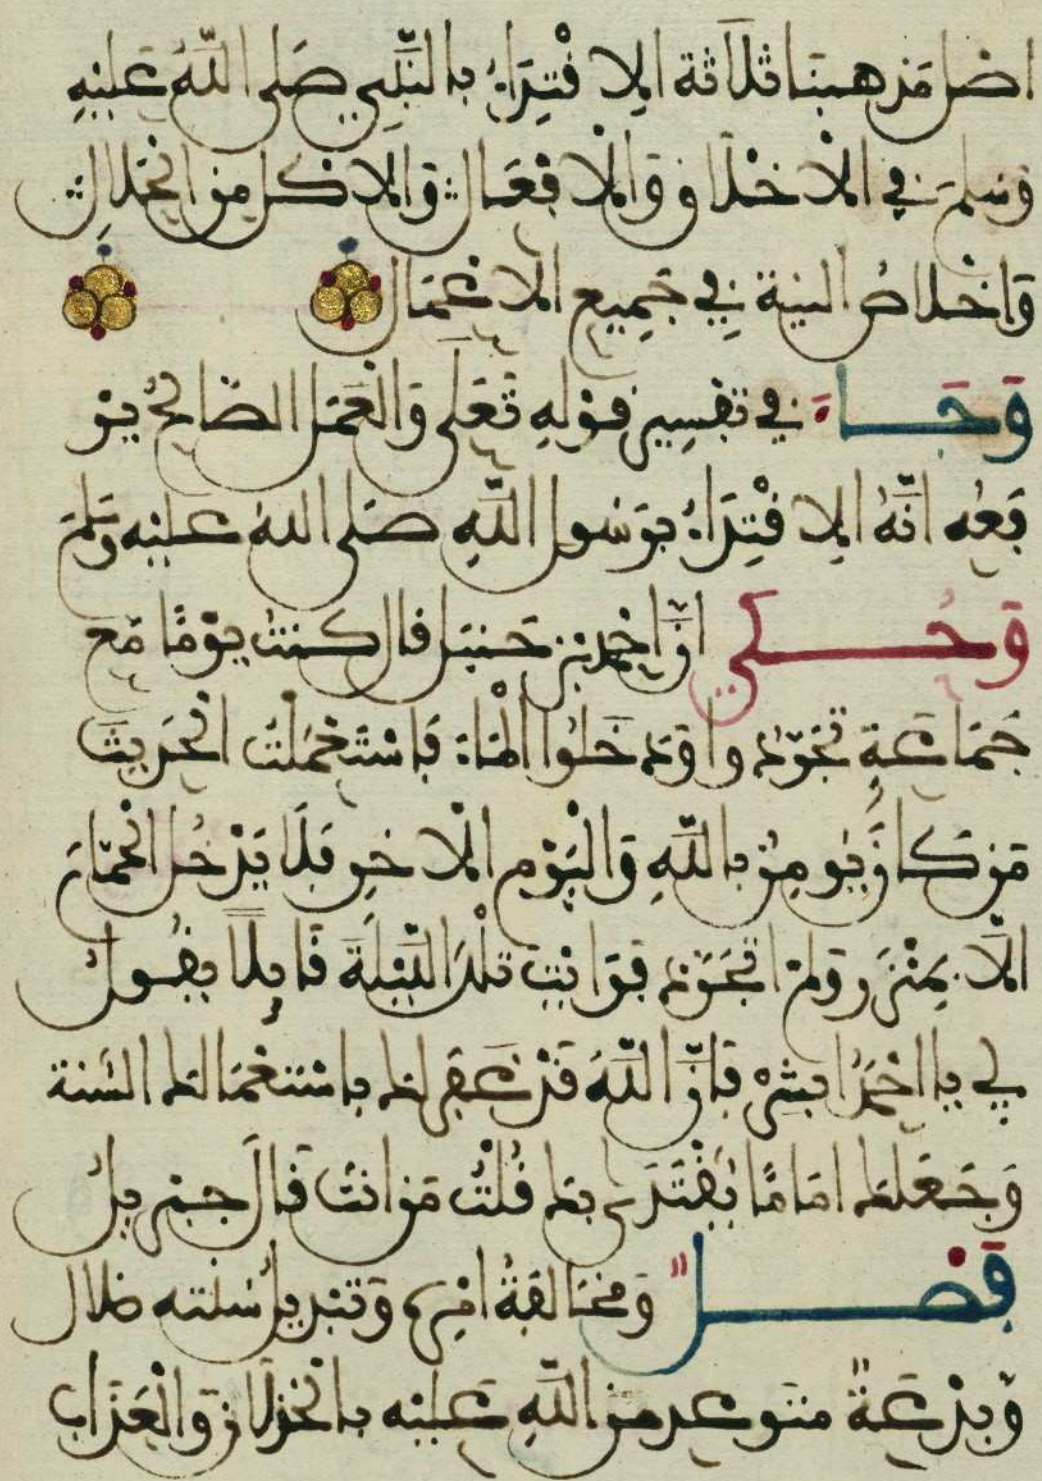 اصل مذهبنا ثلاثة الاقتداء بالنبي صلى الله عليه
وسلم في الاخلاق والافعال والاكل من الحلال
واخلاص النية في جميع الاعمال
وجاء في تفسير قوله تعلى والعمل الصالح ير
فعه انه الاقتداء برسول الله صلى الله عليه وسلم
وحكي ان احمد بن حنبل قال كنت يوما مع
جماعة تجردوا ودخلوا الماء فاستعملت الحديث
من كان يومن بالله واليوم الاخر فلا يدخل الحمام
الا بمئزر ولم اتجرد فرايت تلك الليلة قايلا يقول
لي يا احمد ابشر فان الله قد غفر لك باستعمالك السنة
وجعلك اماما يقتدى بك قلت من انت قال جبريل
فصل ومخالفة امره وتبديل سنته ضلال
وبدعة متوعد من الله عليه بالخذلان والعذاب